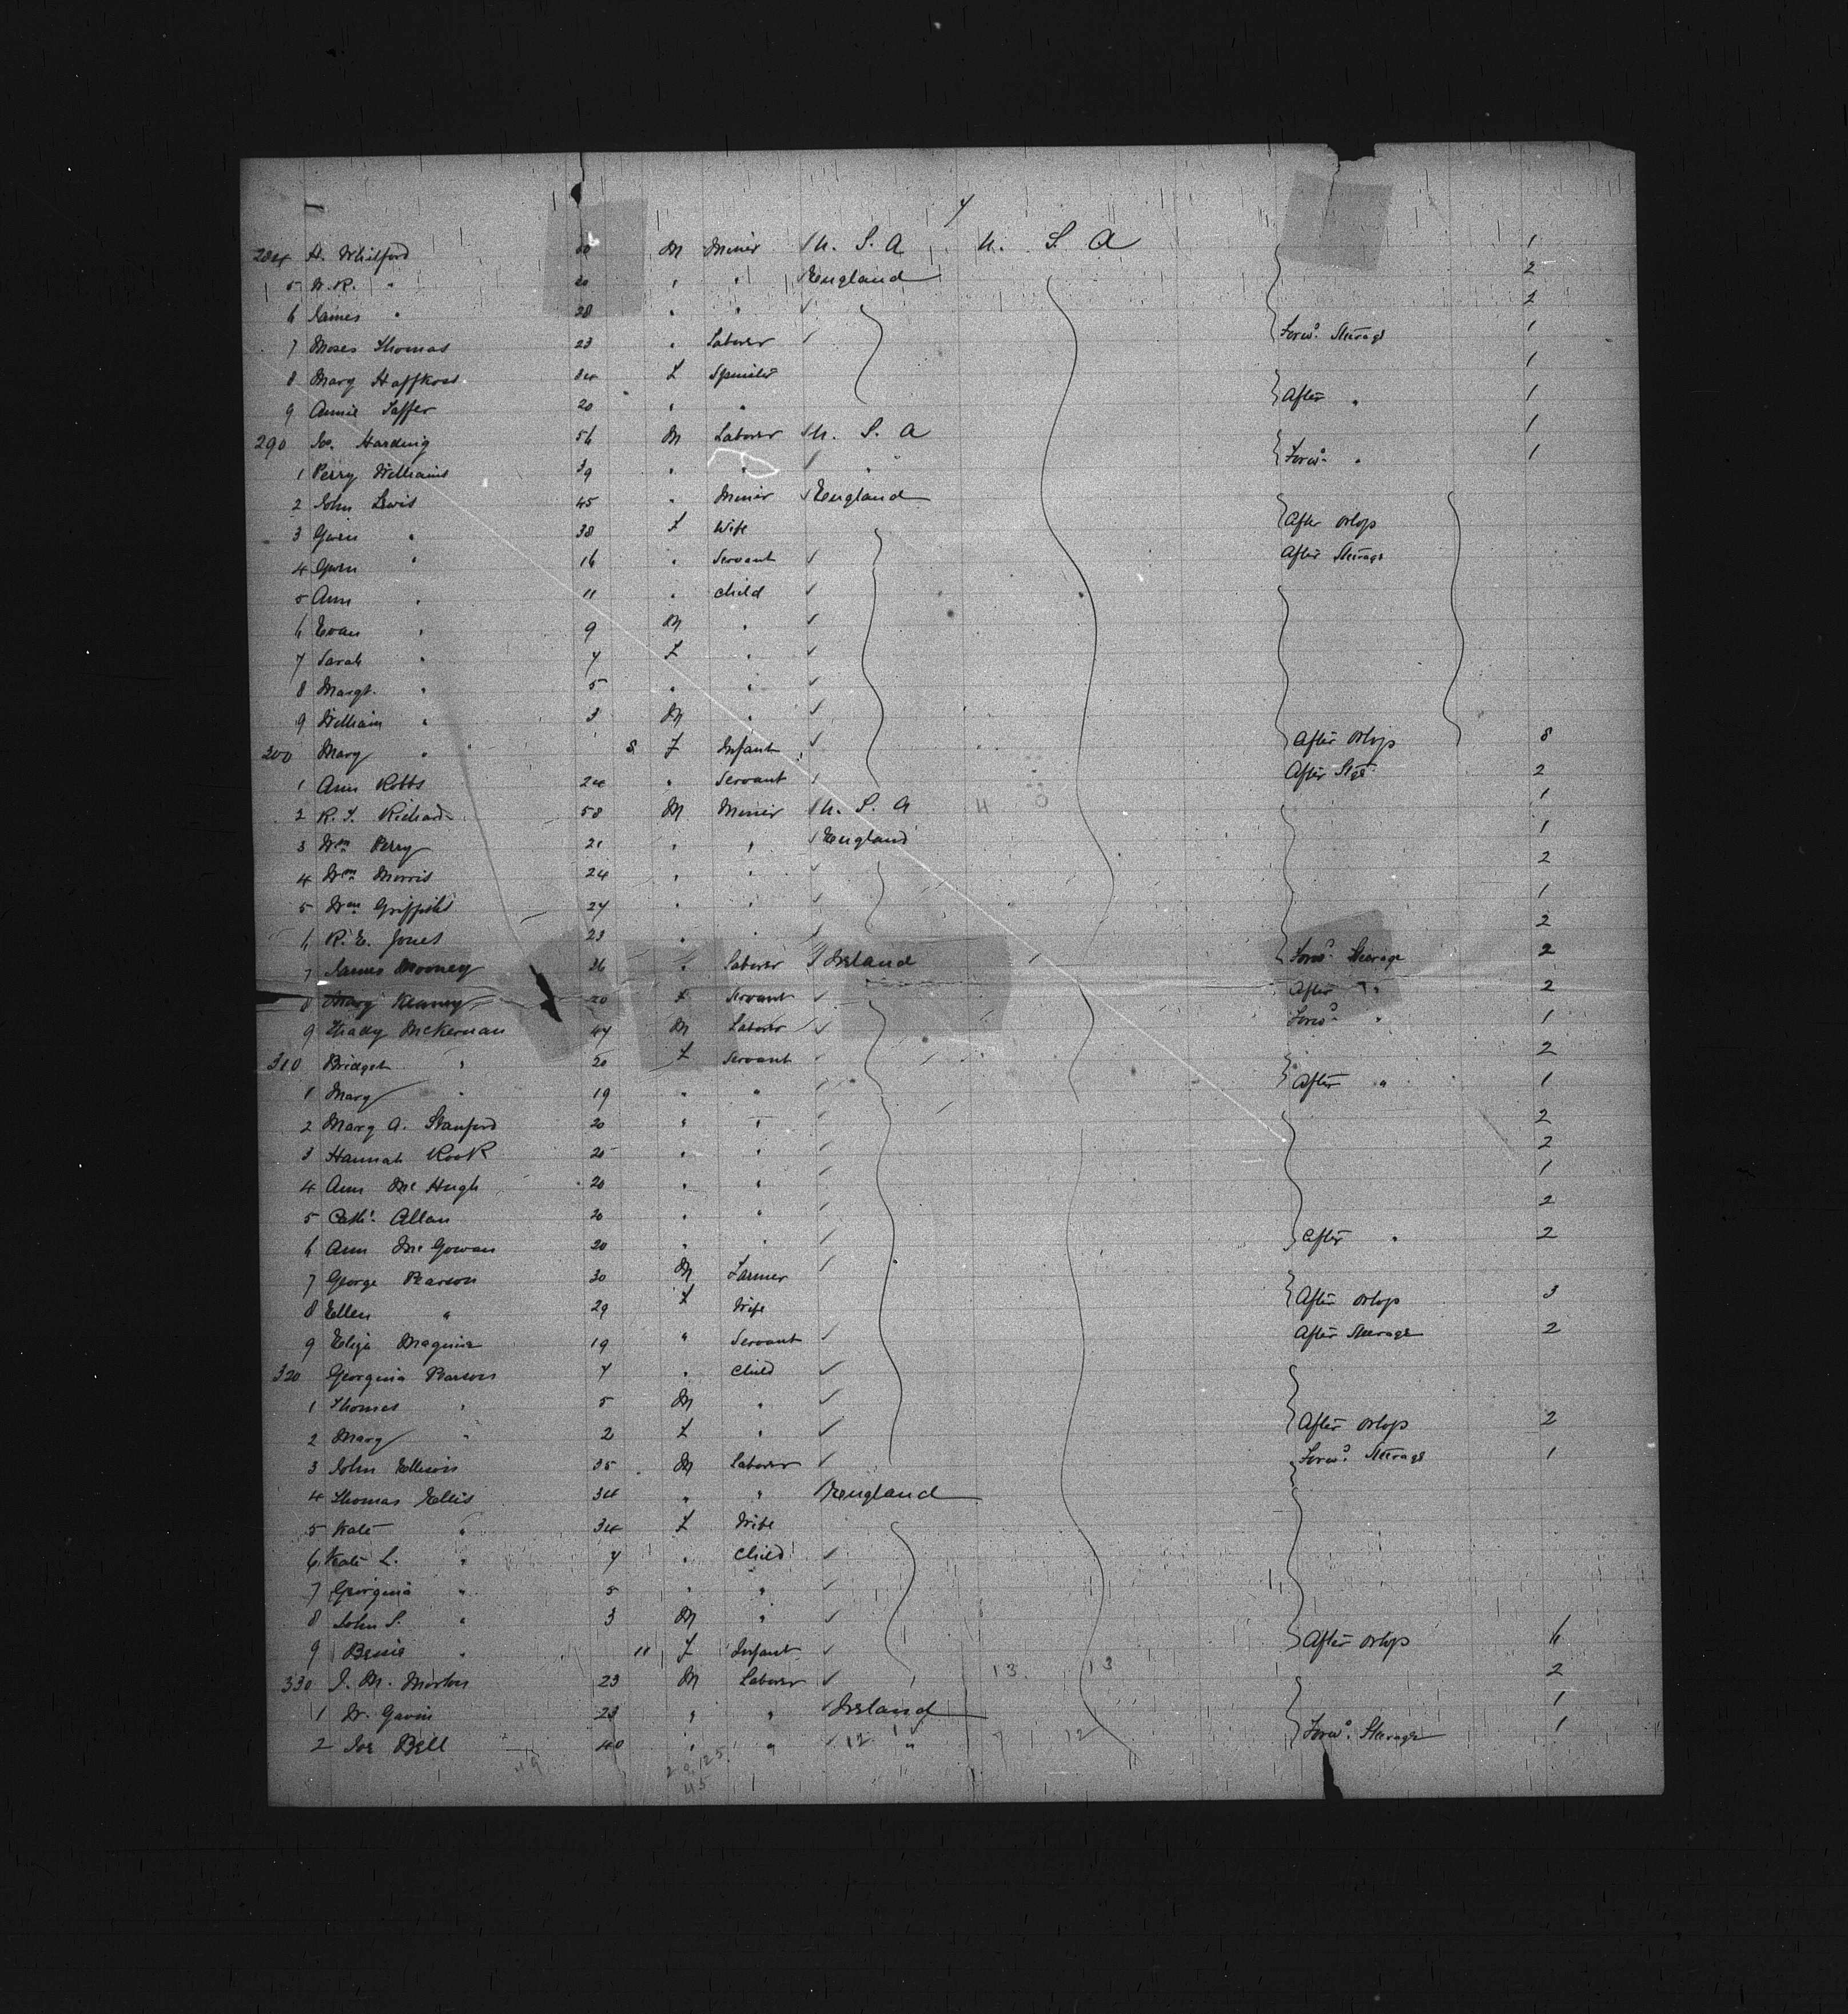 7
284 H. Whitford 60 M Miner U. S. A U. S A 1
5 W. R. " 20 " " England 2
6 James " 28 " " 2
7 Moses Thomas 23 " Laborer Forwd. Steerage 1
8 Mary 24 F Spinster 1
9 Annie 20 " " After " 1
290 Jos. Harding 56 M Laborer U. S. A 1
1 Perry Williams 39 " " " Forwd. " 1
2 John Lewis 45 " Miner England
3 Gwen " 38 F Wife After Orlop
4 Gwen " 16 " Servant After Steerage
5 Ann " 11 " Child
6 Evan " 9 M "
7 Sarah " 7 F "
8 Margt. " 5 " "
9 William " 3 M "
300 Mary " 8 F Infant After Orlop 8
1 Ann Robbs 24 " Servant After Stge 2
2 R. T. Richards 58 M Miner U. S. A 1
3 Wm Perry 21 " " England 1
4 Wm Morris 24 " " 2
5 Wm Griffiths 27 " " 1
6 R. E. Jones 23 " " 2
7 James Mooney 36 " Laborer Ireland Forwd. Steerage 2
8 Mary Kenney 20 F Servant After " 2
9 Thady McKernan 47 M Laborer Forwd. " 1
310 Bridget " 20 F Servant 2
1 Mary " 19 " " After " 1
2 Mary A. Stanford 20 " " 2
3 Hannah Rook 25 " " 2
4 Ann McHugh 20 " " 1
5 Cathe. Allan 20 " " 2
6 Ann McGowan 20 " " After " 2
7 George Pearson 30 M Farmer
8 Ellen " 29 F Wife After Orlop 3
9 Eliza Maguire 19 " Servant After Steerage 2
320 Georgina Pearson 7 " Child
1 Thomas " 5 M "
2 Mary " 2 F " After Orlop 2
3 John Ellison 35 M Laborer Forwd. Steerage 1
4 Thomas Ellis 34 " " England
5 Kate " 34 F Wife
6 Kate L. " 7 " Child
7 Georgina " 5 " "
8 John S. " 3 M "
9 Bessie " 11 F Infant After Orlop 6
330 J. M. Morton 23 M Laborer 13 13 2
1 W. Gavin 23 " " Ireland 1
2 Jos Bell 40 " " 12 " 12 Forwd. Steerage 1